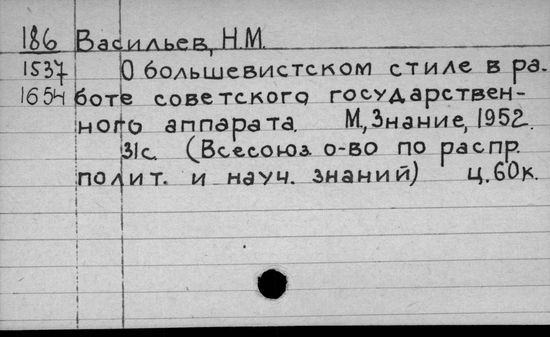 186 Васильев, Н.М.
1537 О большевистском стиле в ра-
1654 боте советского государствен-
ного аппарата. М., Знание, 1952.
31с. (Всесоюз. о-во по распр.
полит. и науч. знаний) ц. 60к.